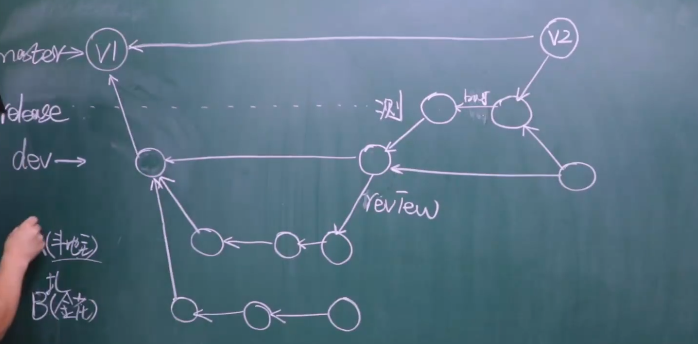 master V1 V2
release 测 bug
dev
review
(斗地主)
B(金花)